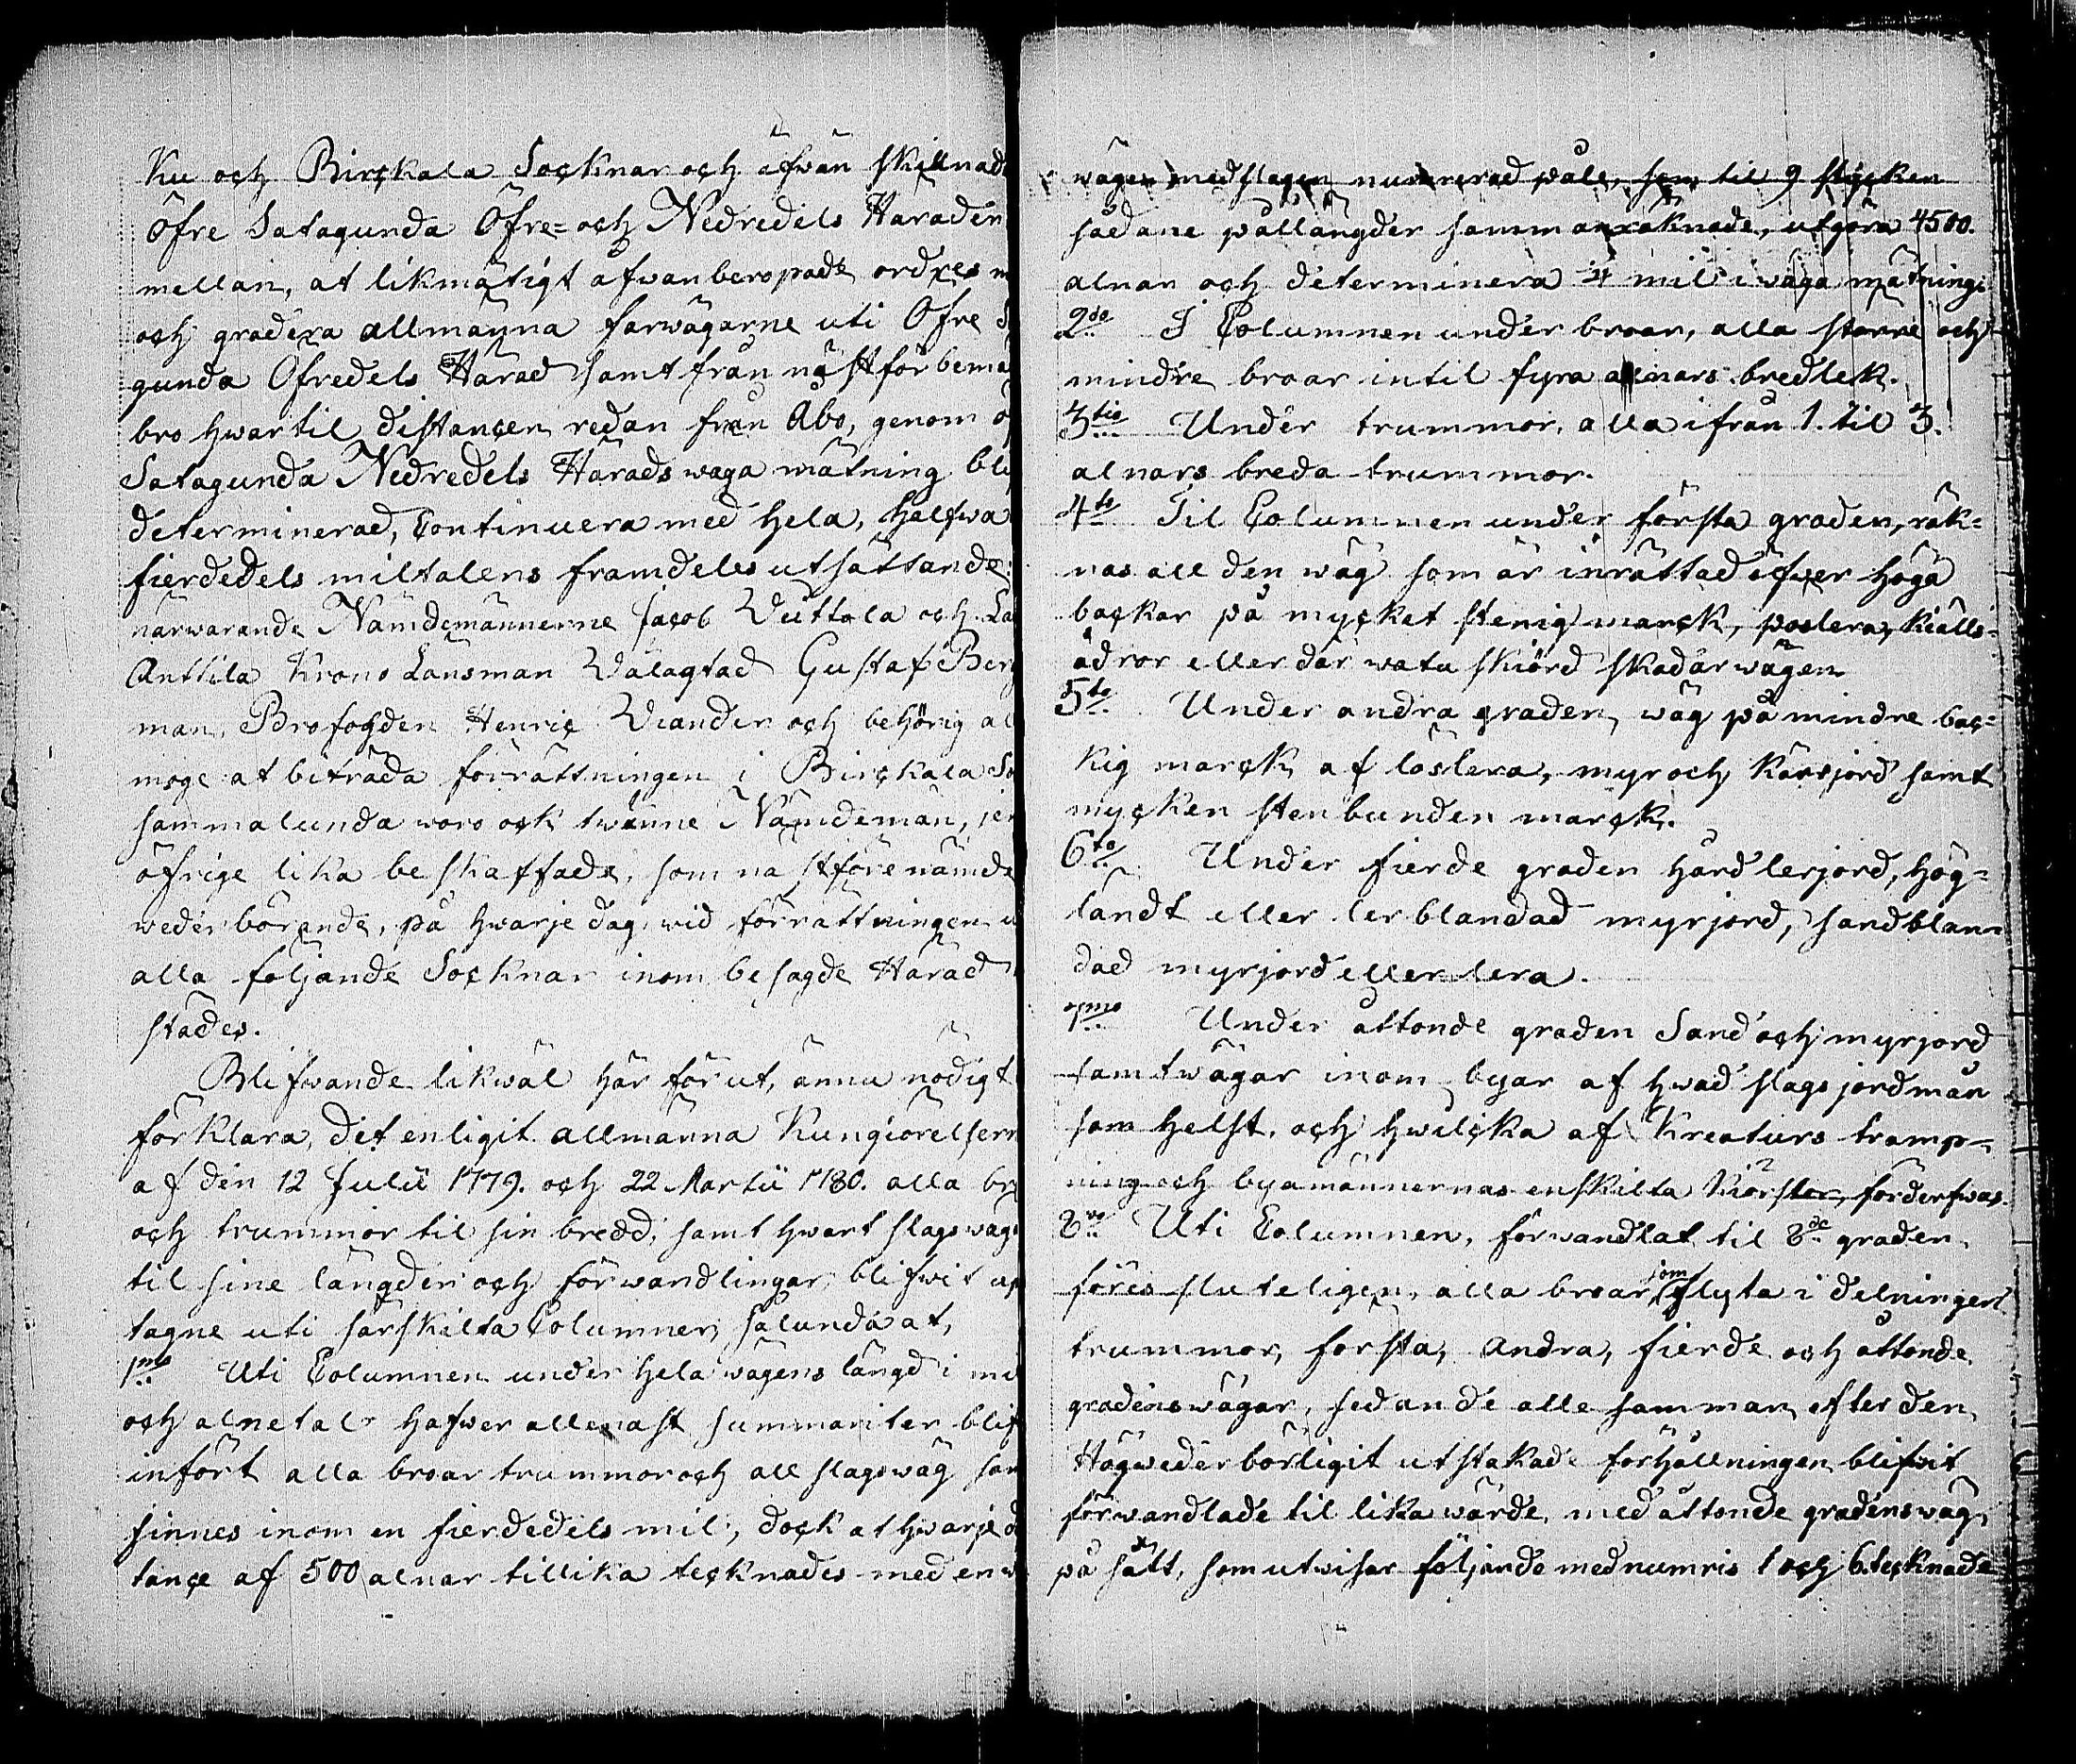 Ku och Birckala Socknar och äfwan skillnad
Öfre Satagunda Öfre= och Nedredels Häraden
mellan, at likmätigt åfwanberopade ordres
och gradera allmänna farwägarne uti Öfre
gunda Öfredels Härad samt från nästförbemä
bro hwartil distancen redan från Åbo, genom
Satagunda Nedredels Härads waga mätning bli
determinerad, Continuera med hela, helfwa
fierdedels miltalens framdeles utsättande:
närwarande Nämdemännerne Jacob Wuttola och La
Anttila Krono Länsman Wälagtad Gustaf Berg
man, Brofogden Henric Wiander och behörig al
moge at biträda förrättningen i Birckala So
sammalunda woro ock twänne Nämdemän, je
öfrige lika beskaffade, som nästförenämde
wederbörande, på hwarje dag wid förrättningen
alla följande Socknar inom besagde Härad
städes.
Blifwande likwäl här förut, ännu nödigt
förklara, det enligit allmänna Kungiörelsern
af den 12 Julii 1779. och 22 Martii 1780. alla bro
och trummor til sin bredd, samt hwart slags wäg
til sine längder och förwandlingar blifwit up
tagne uti särskilta Columner, sålunda at,
1mo Uti Columnen under hela wägens längd i mi
och alnetal hafwer allenast summariter blif
infört alla broar trummor och all slags wäg som
finnes inom en fierdedels mil, dock at hwarje
tance af 500 alnar tillika tecknades med en
wägen nedslagen numrerad påle, som til 9 stycken
sådane pållängder sammanräknade, utgöra 4500.
alnar och determinera 1/4 mil i wäga mätning.
2do I Columnen under broar, alla större och
mindre broar intil fyra alnars bredlek.
3tio Under trummor, alla ifrån 1. til 3.
alnars breda trummor.
4to Til Columnen under första graden, räk=
nas all den wäg som är inrättad öfwer höga
backar på mycket stenig marck, poslera, kiälls=
ådror eller där watuskiörd skadar wägen.
5to Under andra graden, wäg på mindre bac=
kig marck af löslera, myr och Kärrjord samt
mycken stenbunden marck.
6to Under fierde graden hård lerjord, hög=
ländt eller lerblandad myrjord, sandblan=
dad myrjord eller lera.
7mo Under åttonde graden Sand och myrjord
samt wägar inom byar af hwad slags jordmån
som helst, och hwilcka af Kreaturs tramp=
ning och byamännernas enskilta Kiörsler, förderfwas.
8vo Uti Columnen, förwandlat til 8de graden,
föres sluteligen, alla broar, som flyta i delningen
trummor, första, andra, fierde och åttonde
gradens wägar, sedan de alle samman efter den
Högwederbörligit utstakade förhållningen blifwit
förwandlade til lika wärde, med åttonde gradens wäg,
på sätt, som utwisar följande med numris 1 och 6. tecknade